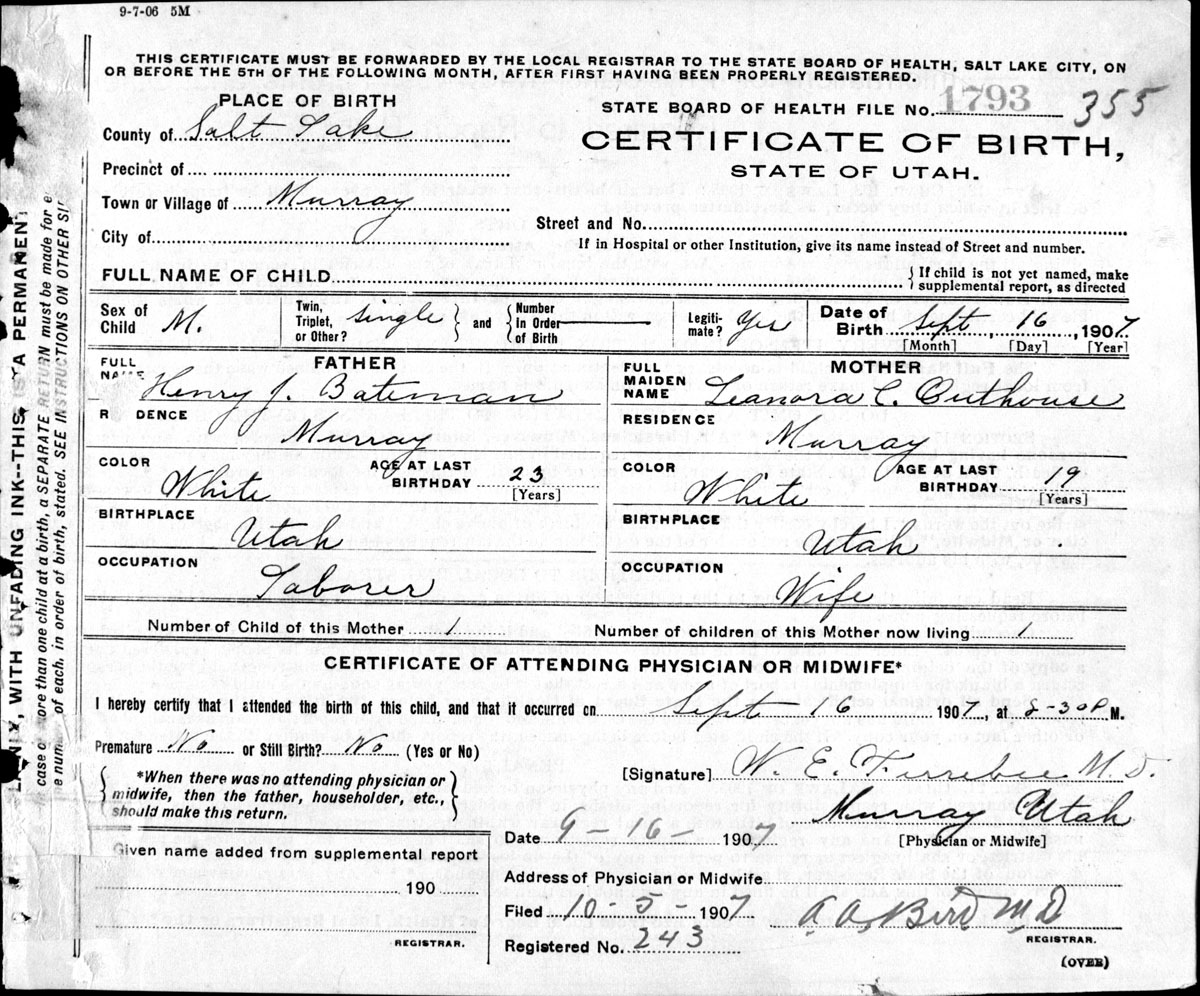 9-7-06 5M
THIS CERTIFICATE MUST BE FORWARDED BY THE LOCAL REGISTRAR TO THE STATE BOARD OF HEALTH, SALT LAKE CITY, ON
OR BEFORE THE 5TH OF THE FOLLOWING MONTH, AFTER FIRST HAVING BEEN PROPERLY REGISTERED.
PLACE OF BIRTH
STATE BOARD OF HEALTH FILE No. 1793 355
County of Salt Lake
CERTIFICATE OF BIRTH,
STATE OF UTAH.
Precinct of
Town or Village of Murray
Street and No.
City of
If in Hospital or other Institution, give its name instead of Street and number.
FULL NAME OF CHILD
{ If child is not yet named, make
supplemental report, as directed
Sex of
Child M.
Twin,
Triplet,
or Other? single } and { Number
In Order
of Birth —
Legiti-
mate? Yes
Date of
Birth Sept 16, 1907
[Month] [Day] [Year]
FATHER
FULL
NAME Henry J. Bateman
R DENCE
Murray
COLOR
White
AGE AT LAST
BIRTHDAY 23
[Years]
BIRTHPLACE
Utah
OCCUPATION
Laborer
MOTHER
FULL
MAIDEN
NAME Leanora C. Outhouse
RESIDENCE
Murray
COLOR
White
AGE AT LAST
BIRTHDAY 19
[Years]
BIRTHPLACE
Utah
OCCUPATION
Wife
Number of Child of this Mother 1
Number of children of this Mother now living 1
CERTIFICATE OF ATTENDING PHYSICIAN OR MIDWIFE*
I hereby certify that I attended the birth of this child, and that it occurred on Sept 16 1907, at 8-30 P. M.
Premature No or Still Birth? No (Yes or No)
{ *When there was no attending physician or
midwife, then the father, householder, etc.,
should make this return. }
[Signature] W. E. Ferrebee M.D.
Murray Utah
[Physician or Midwife]
Date 9-16- 1907
Given name added from supplemental report
190
REGISTRAR.
Address of Physician or Midwife
Filed 10-5- 1907
A. A. Bird M.D
REGISTRAR.
Registered No. 243
(OVER)
LAINLY, WITH UNFADING INK--THIS IS A PERMANENT
case of more than one child at a birth, a SEPARATE RETURN must be made for e
e number of each, in order of birth, stated. SEE INSTRUCTIONS ON OTHER SI